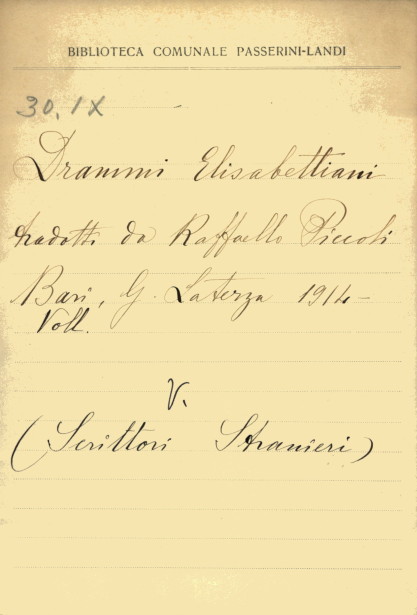 BIBLIOTECA COMUNALE PASSERINI-LANDI
30.IX
Drammi Elisabettiani
tradotti da Raffaello Piccoli
Bari, G. Laterza 1914-
Voll.
V.
(Scrittori Stranieri)